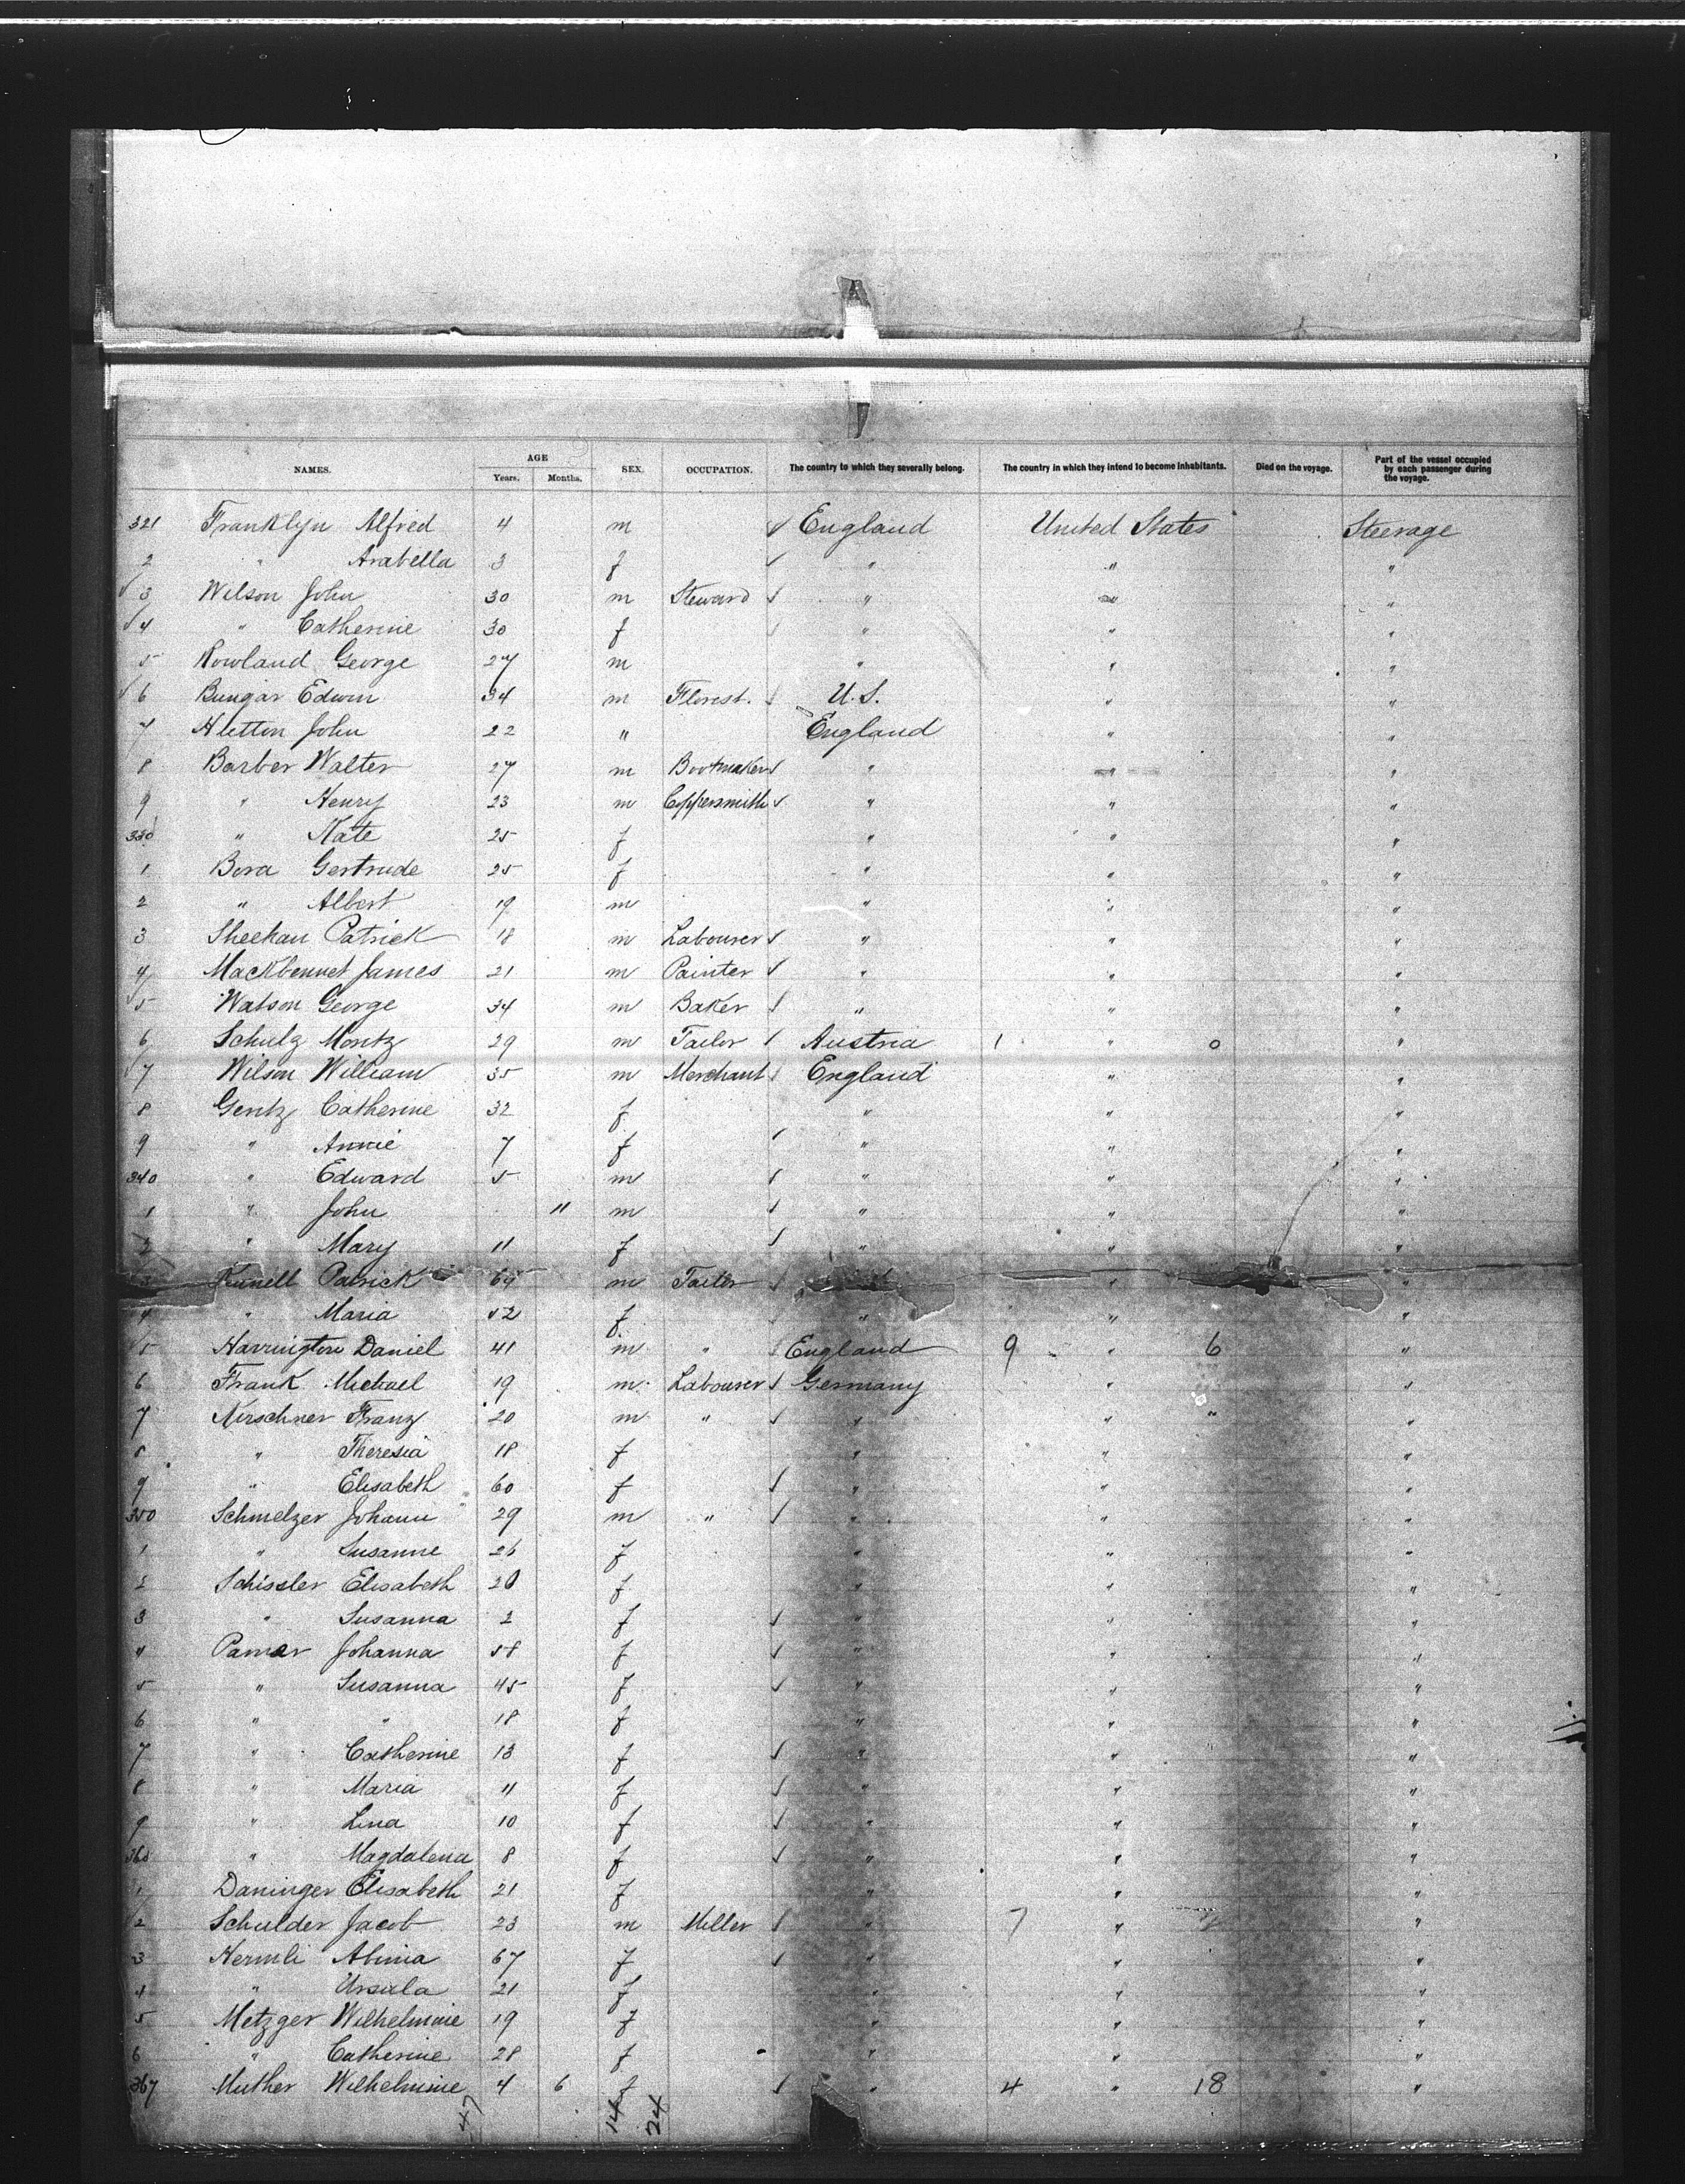 NAMES. AGE Years. Months. SEX. OCCUPATION. The country to which they severally belong. The country in which they intend to become inhabitants. Died on the voyage. Part of the vessel occupied by each passenger during the voyage.
321 Franklyn Alfred 4 m England United States Steerage
2 " Arabella 3 f " " "
3 Wilson John 30 m Steward " " "
4 " Catherine 30 f " " "
5 Rowland George 27 m " " "
6 Bungar Edwin 34 m Florist. U.S. " "
7 Hletton John 22 " England " "
8 Barber Walter 27 m Bootmaker " " "
9 " Henry 23 m Coppersmith " " "
330 " Kate 25 f " " "
1 Bora Gertrude 25 f " " "
2 " Albert 19 m " " "
3 Sheehan Patrick 18 m Labourer " " "
4 Mackbennet James 21 m Painter " " "
5 Watson George 34 m Baker " " "
6 Schulz Moritz 29 m Tailor Austria 1 " 0 "
7 Wilson William 35 m Merchant England " "
8 Gentz Catherine 32 f " " "
9 " Annie 7 f " " "
340 " Edward 5 m " " "
1 " John 11 m " " "
2 " Mary 11 f " " "
3 Patrick m Tailor " "
4 " Maria 52 f " " "
5 Harrington Daniel 41 m " England 9 " 6 "
6 Frank Michael 19 m Labourer Germany " "
7 Kirschner Franz 20 m " " " "
8 " Theresia 18 f " " "
9 " Elisabeth 60 f " " "
350 Schmelzer Johann 29 m " " " "
1 " Susanne 26 f " " "
2 Schissler Elisabeth 20 f " " "
3 " Susanna 2 f " " "
4 Pamer Johanna 58 f " " "
5 " Susanna 45 f " " "
6 " " 18 f " " "
7 " Catherine 13 f " " "
8 " Maria 11 f " " "
9 " Lina 10 f " " "
360 " Magdalena 8 f " " "
1 Daninger Elisabeth 21 f " " "
2 Schulder Jacob 23 m Miller " 7 " "
3 Hermli Albina 67 f " " "
4 " Ursula 21 f " " "
5 Metzger Wilhelmine 19 f " " "
6 " Catherine 28 f " " "
367 Muther Wilhelmine 4 6 f " 4 " 18 "
47 14 24